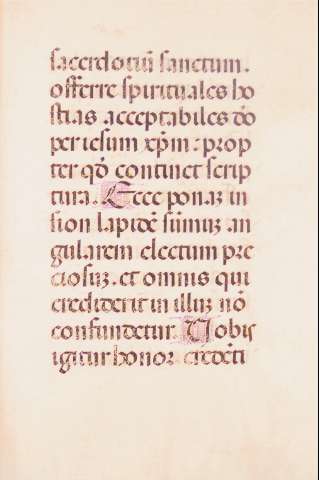 sacerdotiū sanctum.
offerre spirituales ho
stias acceptabiles deo
per iesum xp̄m : prop
ter qđ continet scrip
tura. Ecce ponaꝫ in
sion lapidē sūmuꝫ an
gularem electum pre
ciosuꝫ. et omnis qui
crediderit in illuꝫ nō
confundetur. Uobis
igitur honor credēti